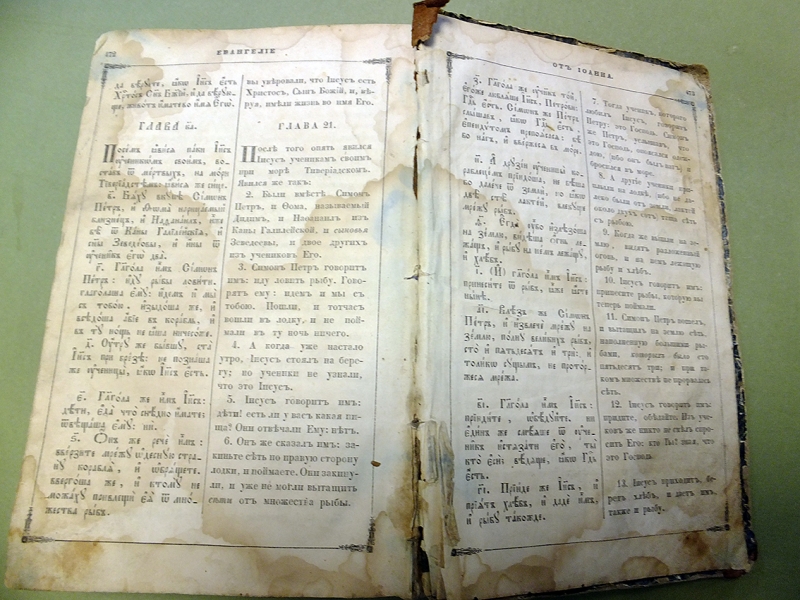 ЕВАНГЕЛІЕ
да вѣруйте, ꙗкѡ І҆и҃съ є҆сть
Хрⷭ҇то́съ Сн҃ъ Бж҃їй, и҆ да вѣрꙋю-
ще, живо́тъ и҆́мате во и҆́мѧ Є҆гѡ̀.
ГЛАВА̀ к҃а.
Посе́мъ ꙗ҆ви́сѧ па́ки І҆и҃съ
ᲂу҆ченикѡ́мъ свои̑мъ, во-
ста́въ ѿ ме́ртвыхъ, на мо́ри
Тиверїа́дстѣмъ: ꙗ҆ви́сѧ же си́це.
в҃. Бѧ́хꙋ вкꙋ́пѣ Сі́мѡнъ
Пе́тръ, и҆ Ѳѡма̀ нарица́емый
близне́цъ, и҆ Наѳана́илъ, и҆́же
бѣ̀ ѿ Ка́ны Галїле́йскїѧ, и҆
сы̑на Зеведе́ѡва, и҆ и҆́на ѿ
ᲂу҆чени̑къ є҆гѡ̀ два̀.
г҃. Гл҃го́ла и҆̀мъ Сі́мѡнъ
Пе́тръ: и҆дꙋ̀ ры́бы лови́ти.
глаго́лаша є҆мꙋ̀: и҆́демъ и҆ мы̀
съ тобо́ю. и҆зыдо́ша же, и҆
всѣдо́ша а҆́бїе въ кора́бль, и҆
въ тꙋ̀ но́щь не ꙗ҆́ша ничесо́же.
д҃. Оу҆́трꙋ же бы́вшꙋ, ста̀
І҆и҃съ при бре́зѣ: не позна́ша
же ᲂу҆чн҃цы̀, ꙗ҆́кѡ І҆и҃съ є҆́сть.
є҃. Гл҃го́ла же и҆̀мъ І҆и҃съ:
дѣ́ти, є҆да̀ что̀ снѣ́дно и҆́мате;
ѿвѣща́ша є҆мꙋ̀: нѝ.
ѕ҃. Ѻ҆́нъ же речѐ и҆̀мъ:
вве́рзите мре́жꙋ ѡ҆деснꙋ́ю стра-
нꙋ̀ кораблѧ̀, и҆ ѡ҆брѧ́щете.
вверго́ша же, и҆ ктомꙋ̀ не
можа́хꙋ привлещѝ є҆ѧ̀ ѿ мно́-
жества ры́бъ.
вы увѣровали, что Іисусъ есть
Христосъ, Сынъ Божій, и, вѣ-
руя, имѣли жизнь во имя Его.
ГЛАВА 21.
Послѣ того опять явился
Іисусъ ученикамъ своимъ
при морѣ Тиверіадскомъ.
Явился же такъ:
2. Были вмѣстѣ Симонъ
Петръ, и Ѳома, называемый
Дидимъ, и Наѳанаилъ изъ
Каны Галилейской, и сыновья
Зеведеевы, и двое другихъ
изъ учениковъ Его.
3. Симонъ Петръ говоритъ
имъ: иду ловить рыбу. Гово-
рятъ ему: идемъ и мы съ
тобою. Пошли, и тотчасъ
вошли въ лодку, и не пой-
мали въ ту ночь ничего.
4. А когда уже настало
утро, Іисусъ стоялъ на бере-
гу; но ученики не узнали,
что это Іисусъ.
5. Іисусъ говоритъ имъ:
дѣти! есть ли у васъ какая пи-
ща? Они отвѣчали Ему: нѣтъ.
6. Онъ же сказалъ имъ: за-
киньте сѣть по правую сторону
лодки, и поймаете. Они закину-
ли, и уже не могли вытащить
сѣти отъ множества рыбы.
ОТЪ ІОАННА.
з҃. Гл҃го́ла же ᲂу҆чени́къ то́й,
є҆го́же люблѧ́ше І҆и҃съ, Петро́ви:
Гдⷭ҇ь є҆́сть. Сі́мѡнъ же Пе́тръ
слы́шавъ, ꙗ҆́кѡ Гдⷭ҇ь є҆́сть,
є҆пендѵ́томъ препоѧ́сасѧ, бѣ́
бо на́гъ, и҆ вве́ржесѧ въ мо́ре.
и҃. А҆ дрꙋзі́и ᲂу҆чн҃цы̀ ко-
рабле́мъ прїидо́ша, не бѣ́ша
бо дале́че ѿ землѝ, но ꙗ҆́кѡ
двѣ̀ стѣ̀ лакте́й, влекꙋ́ще
мре́жꙋ ры́бъ.
ѳ҃. Є҆гда̀ ᲂу҆̀бо и҆злѣзо́ша
на зе́млю, ви́дѣша ѻ҆́гнь ле-
жа́щъ, и҆ ры́бꙋ на не́мъ лежа́щꙋ,
и҆ хлѣ́бъ.
і҃. (И҆) гл҃го́ла и҆̀мъ І҆и҃съ:
принеси́те ѿ ры́бъ, ꙗ҆̀же ꙗ҆́сте
ны́нѣ.
а҃і. Влѣ́зъ же Сі́мѡнъ
Пе́тръ, и҆ и҆звлечѐ мре́жꙋ на
зе́млю, по́лнꙋ вели́кихъ ры́бъ,
сто̀ и҆ пѧтьдесѧ́тъ и҆ трѝ: и҆
толи́кѡ сꙋ́щымъ, не протор-
же́сѧ мре́жа.
в҃і. Гл҃го́ла и҆̀мъ І҆и҃съ:
прїиди́те, ѡ҆бѣ́дꙋйте. ни
є҆ди́нъ же смѣ́ѧше ѿ ᲂу҆че-
ни̑къ и҆стѧза́ти є҆го̀, ты̀
кто̀ є҆сѝ; вѣ́дѧще, ꙗ҆́кѡ Гдⷭ҇ь
є҆́сть.
г҃і. Прїи́де же І҆и҃съ, и҆
прїѧ́тъ хлѣ́бъ, и҆ дадѐ и҆̀мъ,
и҆ ры́бꙋ та́кожде.
7. Тогда ученикъ, котораго
любилъ Іисусъ, говоритъ
Петру: это Господь. Симонъ
же Петръ, услышавъ, что
это Господь, опоясался одеж-
дою, (ибо онъ былъ нагъ) и
бросился въ море.
8. А другіе ученики при-
плыли на лодкѣ, (ибо не да-
леко были отъ земли, локтей
около двухъ сотъ) таща сѣть
съ рыбою.
9. Когда же вышли на зе-
млю, видятъ разложенный
огонь, и на немъ лежащую
рыбу и хлѣбъ.
10. Іисусъ говоритъ имъ:
принесите рыбы, которую вы
теперь поймали.
11. Симонъ Петръ пошелъ,
и вытащилъ на землю сѣть,
наполненную большими ры-
бами, которыхъ было сто
пятьдесятъ три; и при та-
комъ множествѣ не прорвалась
сѣть.
12. Іисусъ говоритъ имъ:
придите, обѣдайте. Изъ уче-
никовъ же никто не смѣлъ спро-
сить Его: кто Ты? зная, что
это Господь.
13. Іисусъ приходитъ, бе-
ретъ хлѣбъ, и даетъ имъ,
также и рыбу.